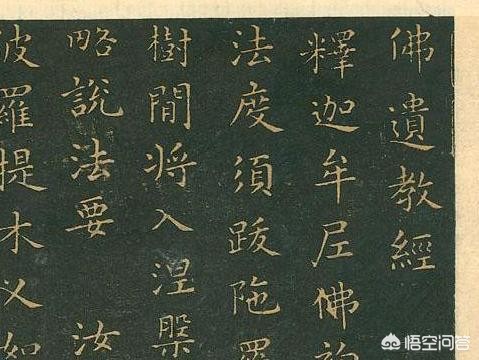 佛遺教經
釋迦牟尼佛初
法度須跋陁羅
樹間将入涅槃
略說法要 汝
波羅提木又如
悟空问答